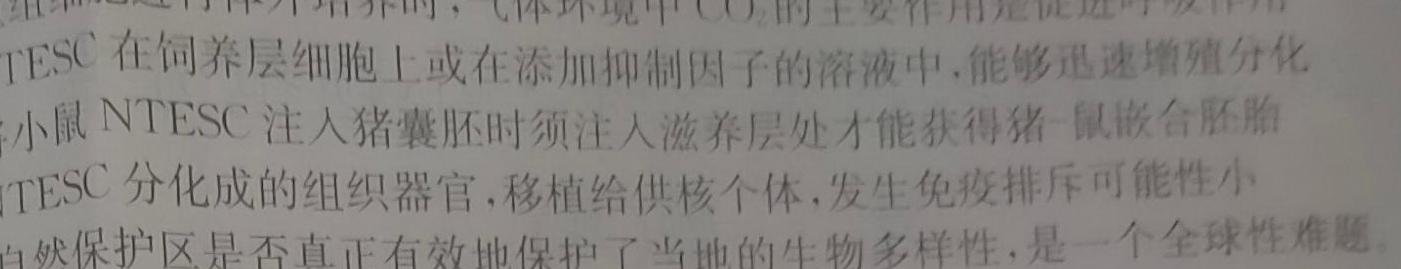 体外培养时,气体环境中CO₂的主要作用是促进呼吸作用
TESC 在饲养层细胞上或在添加抑制因子的溶液中,能够迅速增殖分化
小鼠 NTESC 注入猪囊胚时须注入滋养层处才能获得猪-鼠嵌合胚胎
NTESC 分化成的组织器官,移植给供核个体,发生免疫排斥可能性小
自然保护区是否真正有效地保护了当地的生物多样性,是一个全球性难题。